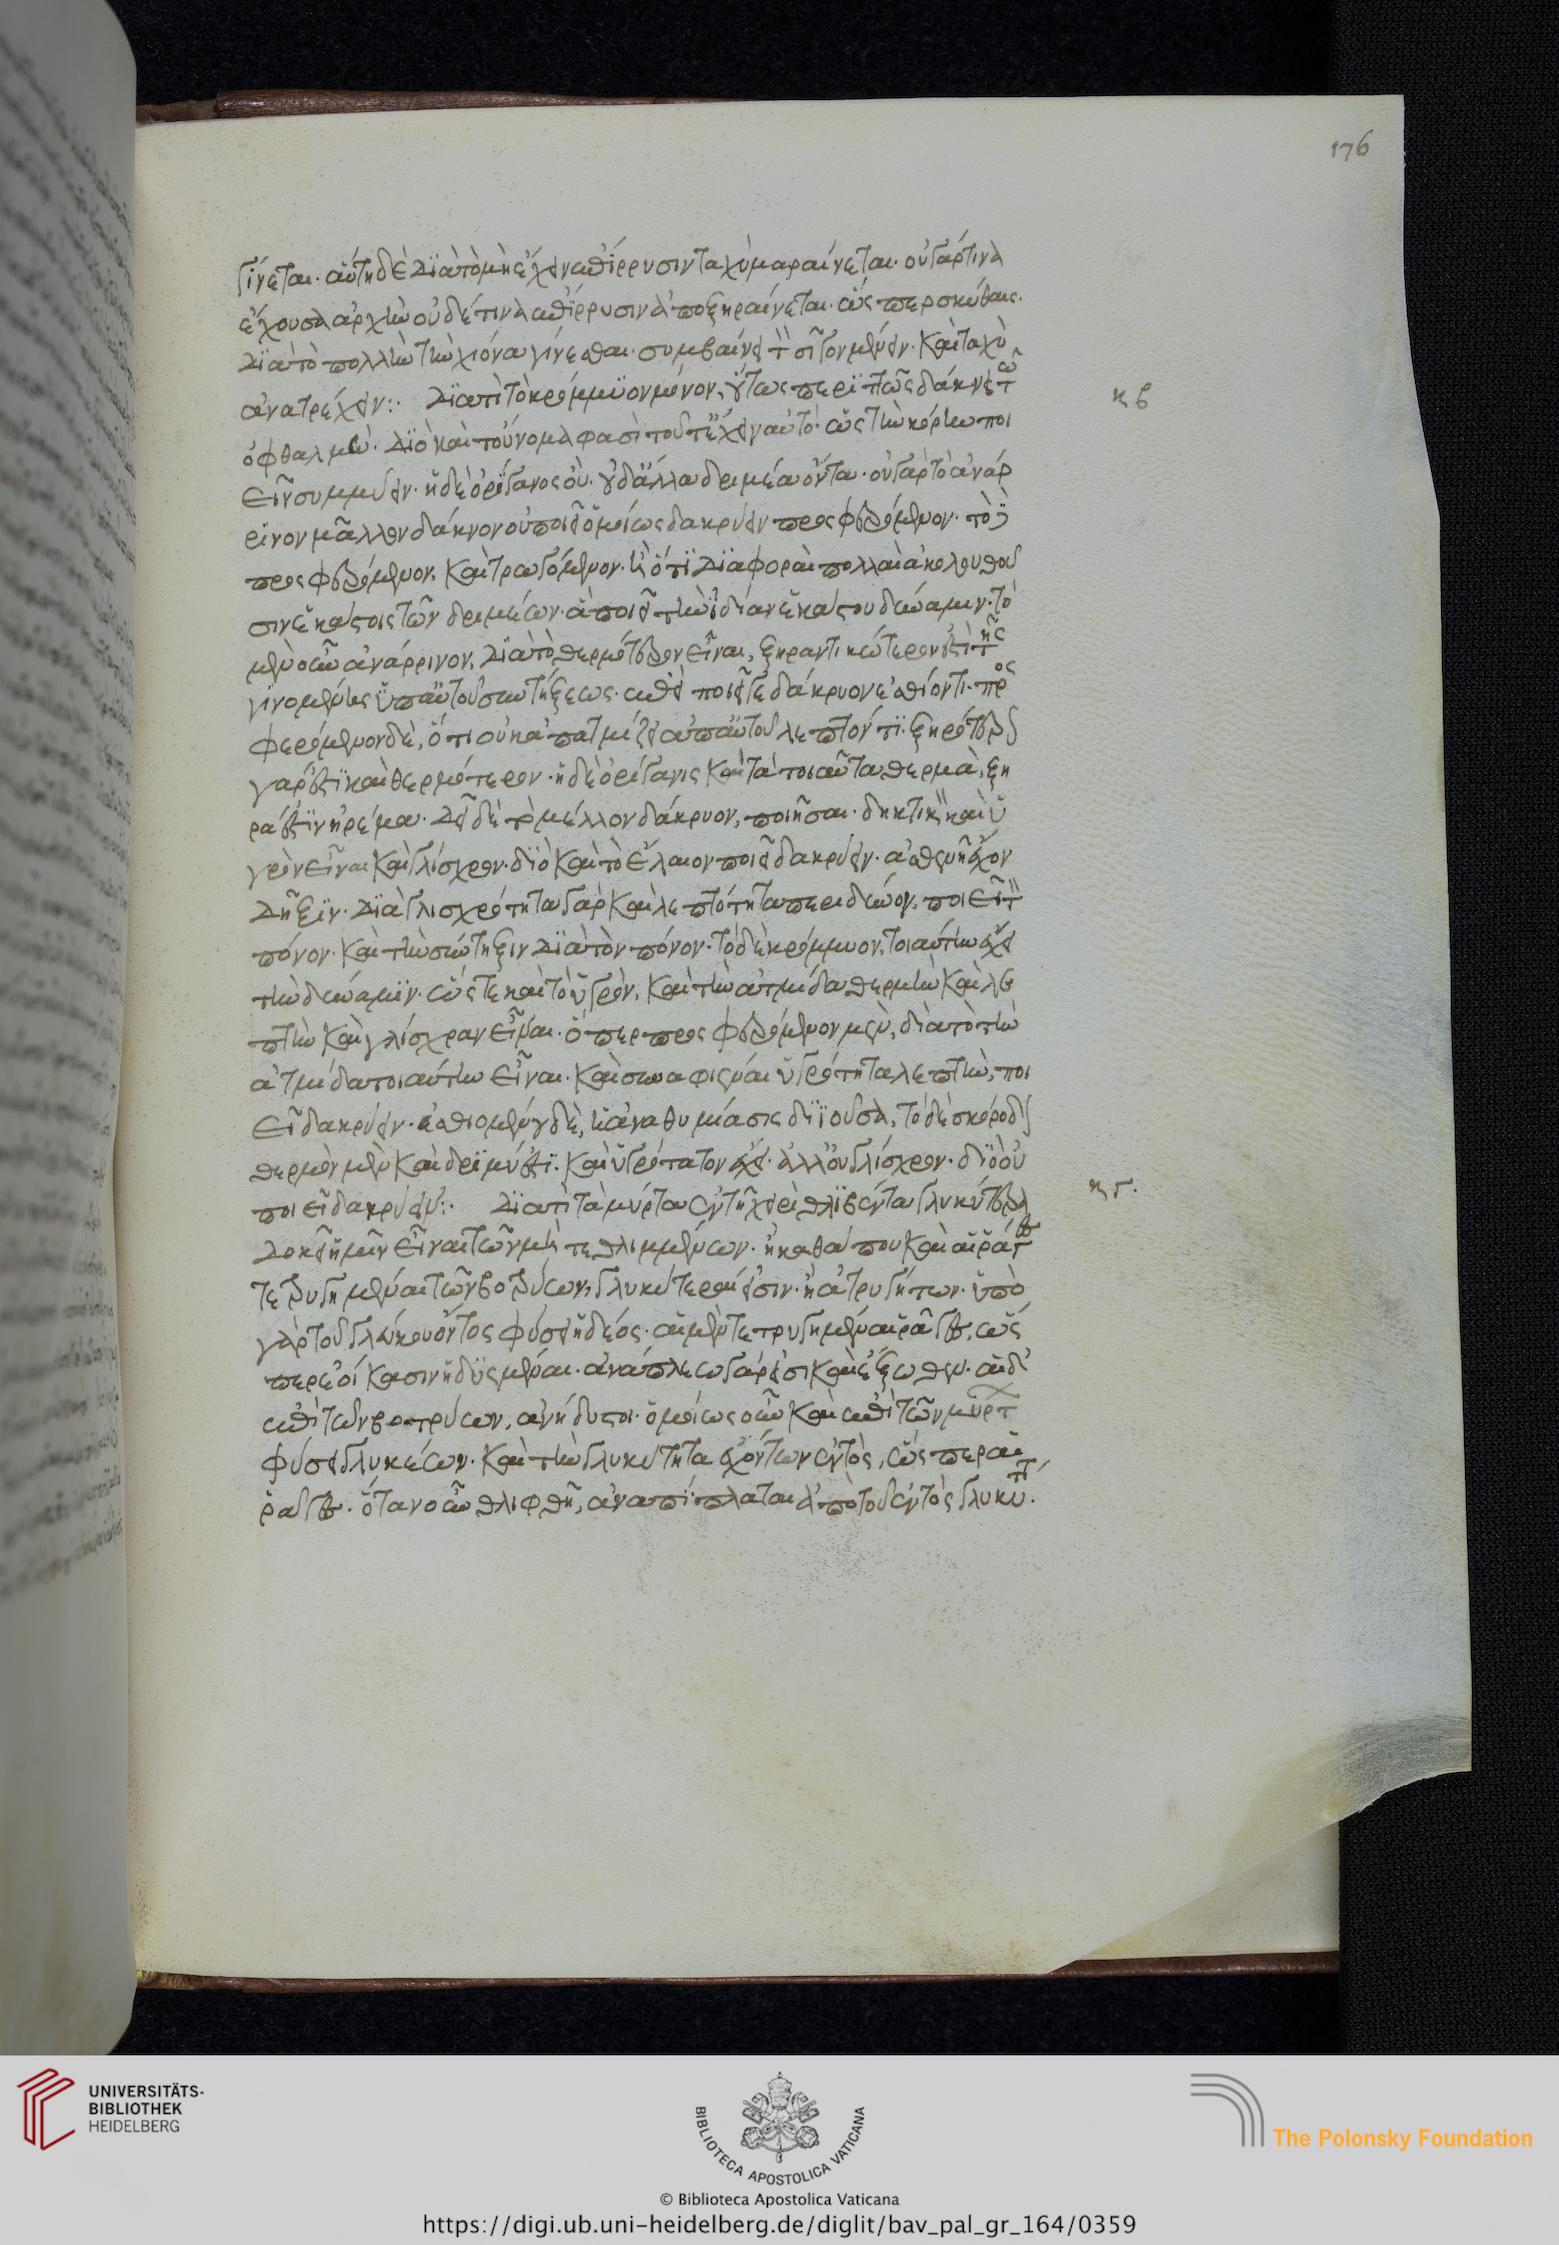 176
γίνεται. αὕτη δὲ διὰ τὸ μὴ ἔχειν ἐπίρρυσιν ταχὺ μαραίνεται. οὐ γάρ τινα
ἔχουσα ἀρχὴν οὐδέ τινα ἐπίρρυσιν ἀποξηραίνεται. ὥσπερ σκύθαις.
διὰ τὸ πολλὴν τὴν χιόνα γίνεσθαι. συμβαίνει τὸν σῖτον μένειν. καὶ ταχὺ
ἀνατρέχειν:· διατί τὸ κρόμμυον μόνον, οὕτως περιττῶς δάκνει τὼ
κβ
ὀφθαλμώ. διὸ καὶ τοὔνομα φασὶ τοῦτ' ἔχειν αὐτό. ὡς τὴν κόρην ποι
εῖν συμμύειν. ἡ δὲ ὀρίγανος οὔ. οὐδ' ἄλλα δριμέα ὄντα. οὐ γὰρ τὸ ἀνάρ
ρινον μᾶλλον δάκνον οὐ ποιεῖ ὁμοίως δακρύειν προσφερόμενον. τὸ δὲ
προσφερόμενον. καὶ τρωγόμενον. ἢ ὅτι διαφοραὶ πολλαὶ ἀκολουθοῦ
σιν ἑκάστοις τῶν δριμέων. ἃ ποιεῖ τὴν ἰδίαν ἑκάστου δύναμιν. τὸ
μὲν οὖν ἀνάρρινον, διὰ τὸ θερμότερον εἶναι, ξηραντικώτερόν ἐστι τῆς
γινομένης ὑπ' αὐτοῦ συντήξεως. ἐπεὶ ποιεῖ γε δάκρυον ἐσθίοντι. προσ
φερόμενον δὲ, ὅτι οὐκ ἀπατμίζει ἀπ' αὐτοῦ λεπτόν τι. ξηρότερον
γάρ ἐστι καὶ θερμότερον. ἡ δὲ ὀρίγανις καὶ τὰ τοιαῦτα θερμὰ, ξη
ρά ἐστιν ἠρέμα. δεῖ δὲ τὸ μέλλον δάκρυον, ποιῆσαι. δηκτικὸν καὶ ὑ
γρὸν εἶναι καὶ γλίσχρον. διὸ καὶ τὸ ἔλαιον ποιεῖ δακρύειν. ἀσθενῆ ἔχον
δῆξιν. διὰ γλισχρότητα γὰρ καὶ λεπτότητα περιδυνόν, ποιεῖ τὸν
πόνον. καὶ τὴν σύντηξιν διὰ τὸν πόνον. τὸ δὲ κρόμμυον, τοιαύτην ἔχει
τὴν δύναμιν. ὥστε καὶ τὸ ὑγρὸν, καὶ τὴν ἀτμίδα θερμὴν καὶ λε
πτὴν καὶ γλίσχραν εἶναι. ὅπερ προσφερόμενον μὲν, διὰ τὸ τὴν
ἀτμίδα τοιαύτην εἶναι. καὶ συναφιέναι ὑγρότητα λεπτὴν, ποι
εῖ δακρύειν. ἐσθιομένου δὲ, ἡ ἀναθυμίασις διϊοῦσα. τὸ δὲ σκόροδον
θερμὸν μὲν καὶ δριμύ ἐστι. καὶ ὑγρότατον ἔχει. ἀλλ' οὐ γλίσχρον. διὸ οὐ
ποιεῖ δακρύειν:· διατί τὰ μύρτα ἐν τῇ χειρὶ θλιβέντα γλυκύτερα
κγ.
δοκεῖ ἡμῖν εἶναι τῶν μὴ τεθλιμμένων. ἢ καθάπου καὶ αἱ ῥᾶγες
τετρυγημέναι τῶν βοτρύων, γλυκύτεραί εἰσιν. ἢ ἀτρυγήτων. ὑπὸ
γὰρ τοῦ γλεύκου ὄντος φύσει ἡδέος. αἱ μὲν τετρυγημέναι ῥᾶγες, ὥσ
περ ἐοίκασιν ἡδυσμέναι. ἀνάπλεω γάρ εἰσι καὶ ἔξωθεν. αἱ δ'
ἐπὶ τῶν βοτρύων, ἀνήδυντοι. ὁμοίως οὖν καὶ ἐπὶ τῶν μύρτων
φύσει γλυκέων. καὶ τὴν γλυκύτητα ἐχόντων ἐντὸς, ὥσπερ αἱ
ῥᾶγες. ὅταν οὖν θλιφθῇ, ἀναπίπλαται ἀπὸ τοῦ ἐντὸς γλυκύτητος.
UNIVERSITÄTS-
BIBLIOTHEK
HEIDELBERG
BIBLIOTECA APOSTOLICA VATICANA
The Polonsky Foundation
© Biblioteca Apostolica Vaticana
https://digi.ub.uni-heidelberg.de/diglit/bav_pal_gr_164/0359